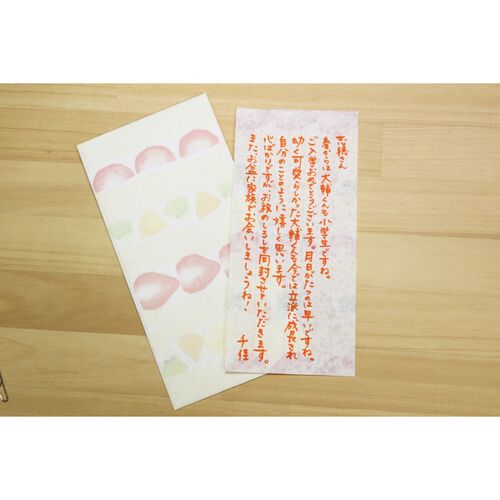 志穂さん
春からは大輔くんも小学生ですね。
ご入学おめでとうございます。月日がたつのは早いですね。
幼く可愛らしかった大輔くんも今では立派に成長され
自分のことのように嬉しく思います。
心ばかりですが、お祝のしるしを同封させていただきます。
また、お盆に家族でお会いしましょうね!
千佳